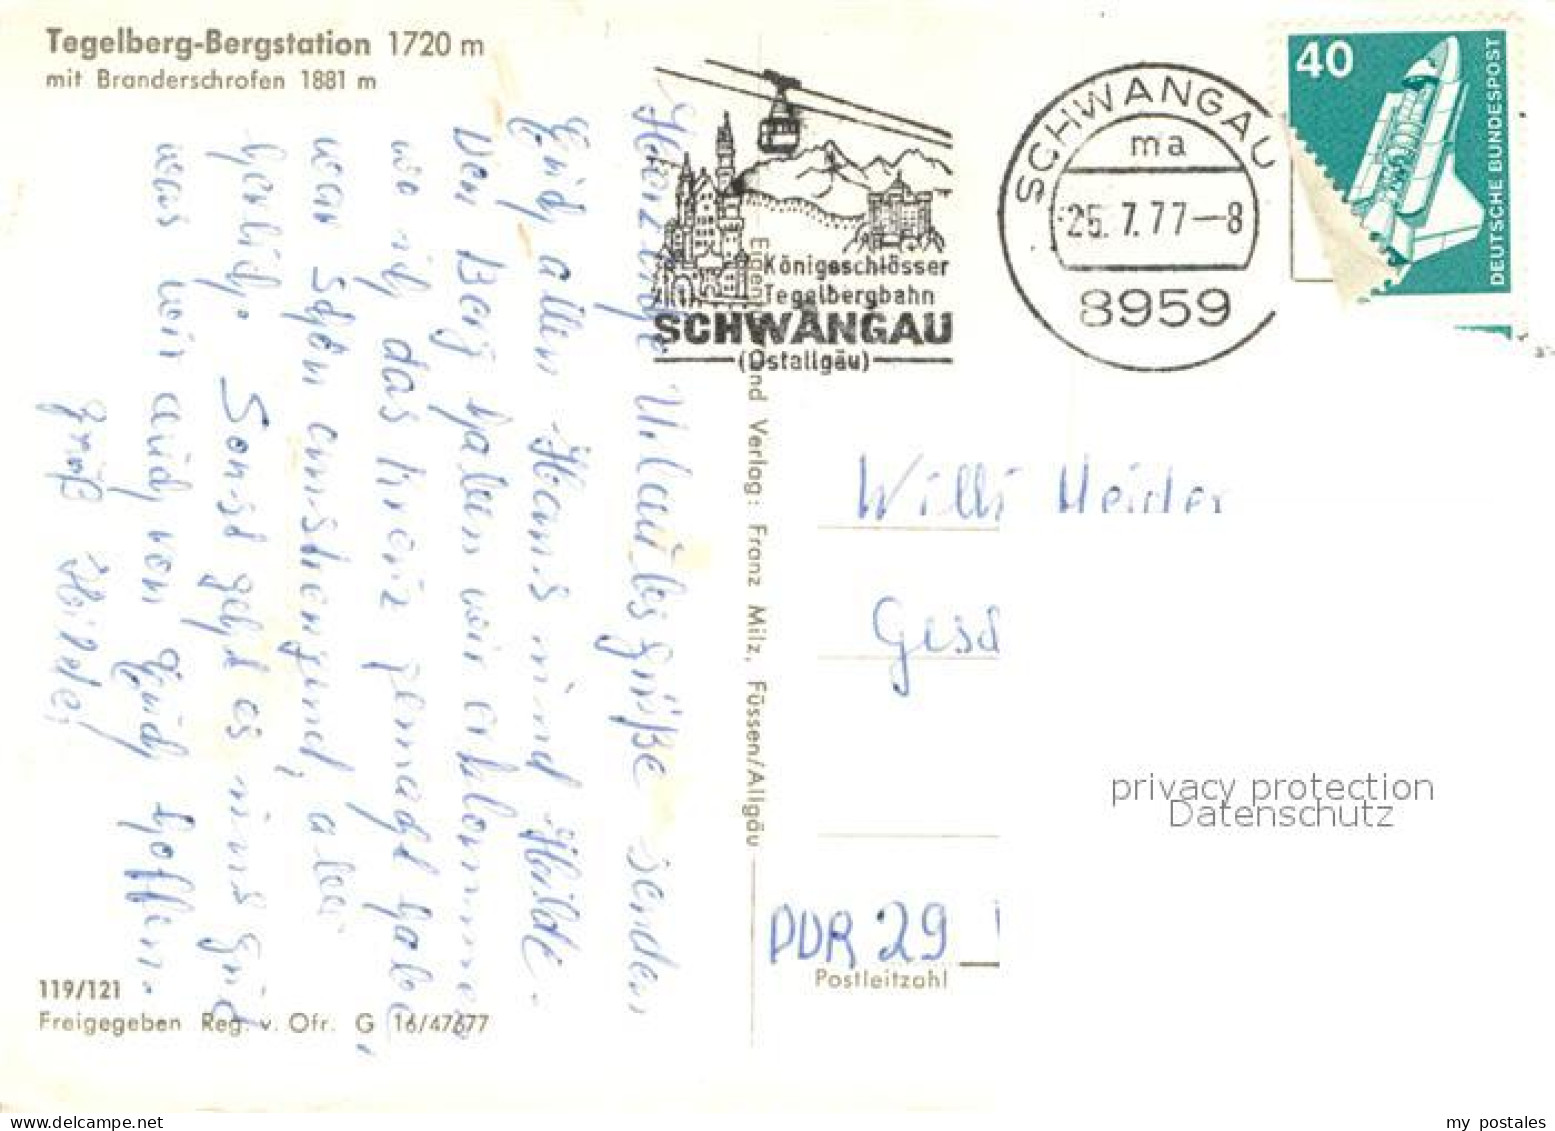 Tegelberg-Bergstation 1720 m
mit Branderschrofen 1881 m
Herzliche Urlaubsgrüße senden
Euch allen Hans und Hilde.
Den Berg haben wir erklommen
wo ich das Kreuz gemacht habe,
war schön anstrengend, aber
herlich. Sonst geht es uns gut
was wir auch von Euch hoffen.
Gruß Hilde
119/121
Freigegeben Reg. v. Ofr. G 16/47677
Königsschlösser
Tegelbergbahn
SCHWANGAU
(Ostallgäu)
SCHWANGAU
ma
25.7.77-8
8959
40
DEUTSCHE BUNDESPOST
und Verlag: Franz Milz, Füssen/Allgäu
Willi
DDR 29
Postleitzahl
privacy protection
Datenschutz
www.ansichtskartenversand.com
my postales